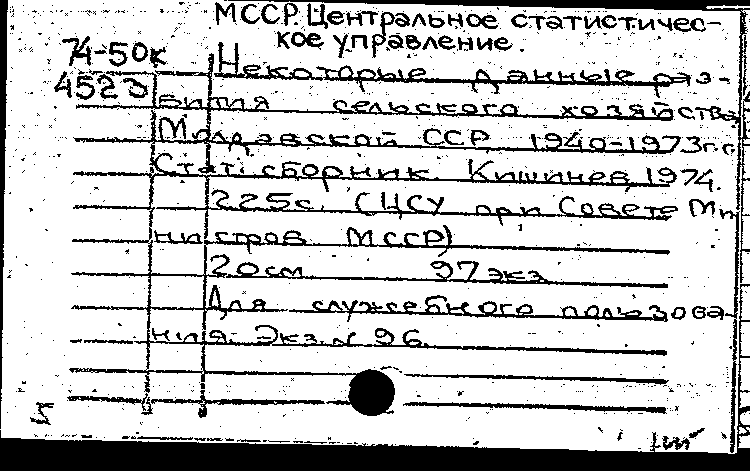 МССР. Центральное статистичес-
кое управление.
74-50к
4523
Некоторые данные раз-
вития сельского хозяйства
Молдавской ССР, 1940-1973гг.
Стат. сборник. Кишинев, 1974.
225с. (ЦСУ при Совете Ми-
нистров МССР)
20см. 97экз.
Для служебного пользова-
ния. Экз. № 96.